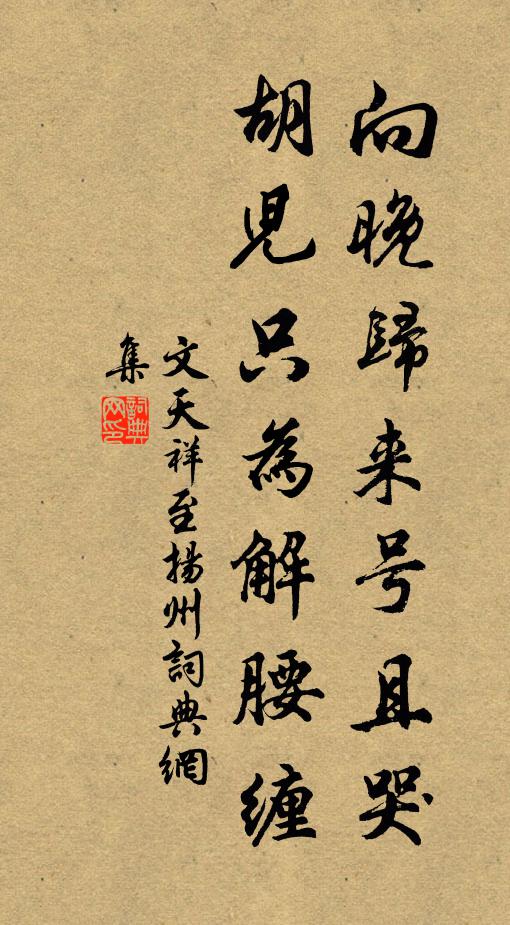 向晚歸来号且哭
胡児只為解腰纏
文天祥至揚州詞典網
集
詞典網印